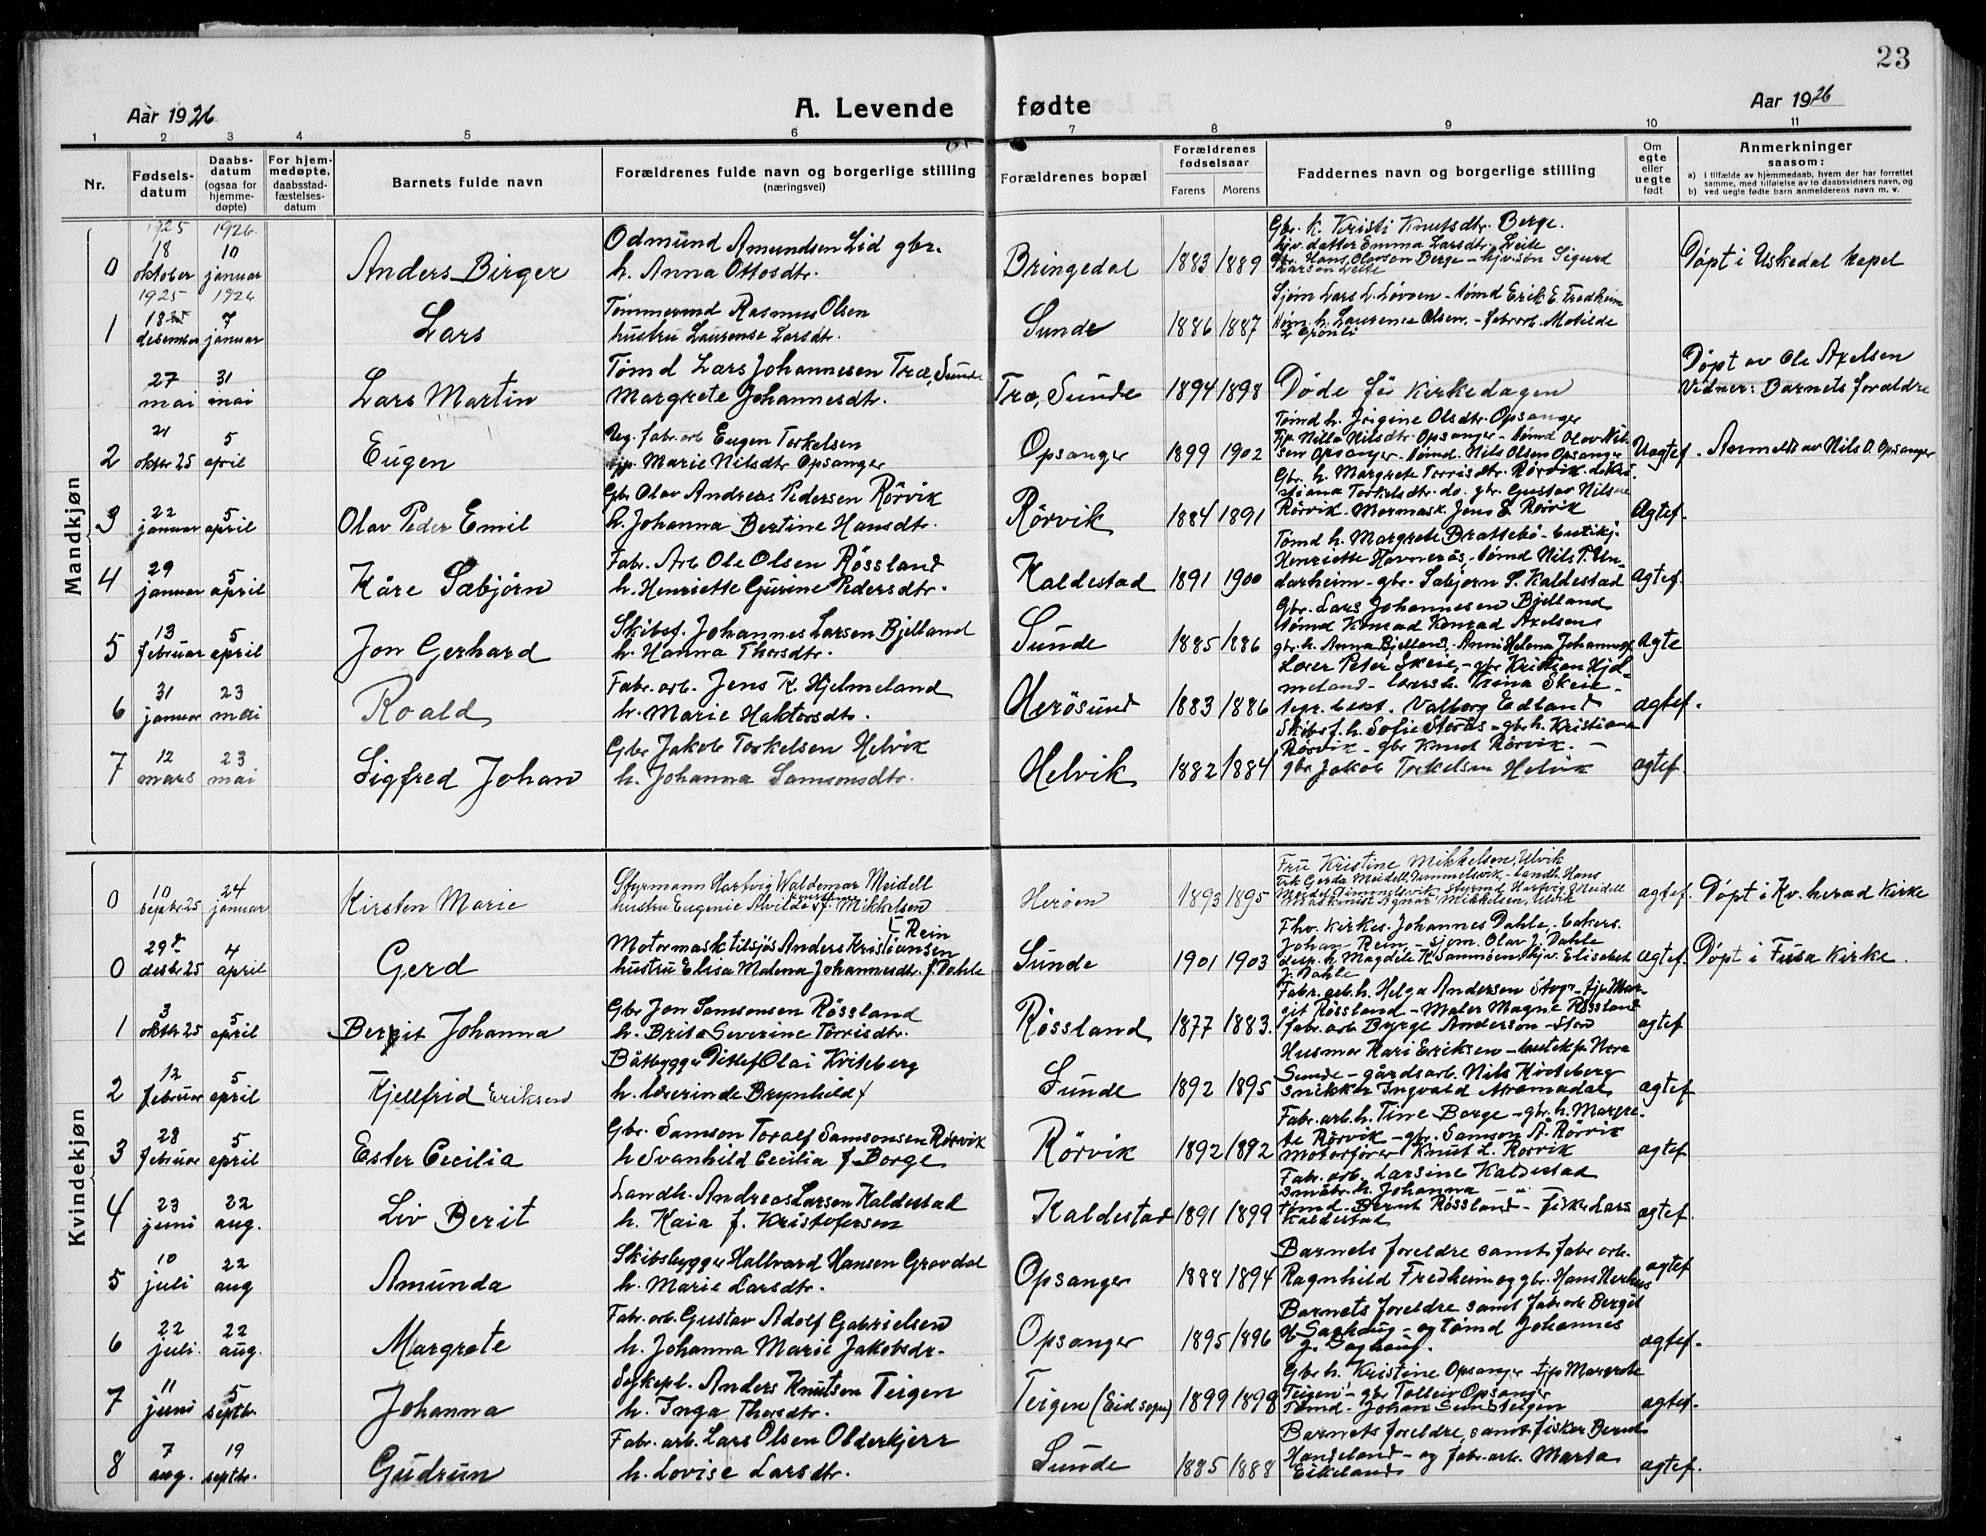 23
Aar 1926
A. Levende fødte
Aar 1926
1 2 3 4 5 6 7 8 9 10 11
Nr.
Fødsels-
datum
Daabs-
datum
(ogsaa for
hjemme-
døpte)
For hjem-
medøpte,
daabsstad-
fæstelses-
datum
Barnets fulde navn
Forældrenes fulde navn og borgerlige stilling
(næringsvei)
Forældrenes bopæl
Forældrenes
fødselsaar
Farens Morens
Faddernes navn og borgerlige stilling
Om
egte
eller
uegte
født
Anmerkninger
saasom:
a) i tilfælde av hjemmedaab, hvem der har forrettet
samme, med tilføielse av to daabsvidners navn, og
b) ved uegte født barn anmelderens navn m. v.
Mandkjøn
1925 1926
0 18 oktober 10 januar
Anders Birger
Odmund Amundsen Lid gbr.
h. Anna Ottosdtr.
Bringedal 1883 1889
Gbr. k. Kristi Knutsdtr. Berge.
hjv. datter Emma Larsdtr. Leite
gbr. Hans Olavson Berge - hjv. søn Sigurd
Larson Leite
Døpt i Uskedal kapel
1925 1926
1 18 desember 7 januar
Lars
Tømmermd Rasmus Olsen
hustru Laurense Larsdtr.
Sunde 1886 1887
Sjøm Lars L. Løvaen - tømd Erik E. Fredheim
h. Laurense Olsen. - fabrarb. Matilde
Grønli
27 mai 31 mai
Lars Martin
Tømd Lars Johannesen Træ, Sunde
Margrete Johannesdtr.
Træ, Sunde 1894 1898
Døde før kirkedagen
Døpt av Ole Axelsen
Vidner: Barnets forældre
2 21 oktbr 25 5 april
Eugen
Ug. fabr. arb Eugen Torkelsen
tjp. Marie Nilsdtr Opsanger
Opsanger 1899 1902
Tømd h. Jørgine Olsdtr. Opsanger
Tjp. Nilla Nilsdtr. Opsanger - tømd Olav Nil-
sen Opsanger - tømd. Nils Olsen Opsanger
Uægtef. Anmeldt av Nils O. Opsanger
3 22 januar 5 april
Olav Peder Emil
Gbr Olav Andreas Pedersen Rørvik
h. Johanna Bertine Hansdtr.
Rørvik 1884 1891
Gbr. h. Margrete Torrisdtr. Rørvik. do Kri-
stiana Torkelsdtr. do. gbr. Gustav Nilsen
Rørvik. Mormask. Jens L Rørvik
Ægtef.
4 29 januar 5 april
Kåre Sæbjørn
Fabr. Arb Ole Olsen Røssland
h. Henriette Gurine Pedersdtr.
Kaldestad 1891 1900
Tømd h. Margrete Brattebø - butikj.
Henriette Havnerås, tømd Nils T. Un-
darheim - gbr. Sæbjørn S. Kaldestad
ægtef.
5 13 februar 5 april
Jon Gerhard
Skibsf. Johannes Larsen Bjelland
h. Hanna Thorsdtr.
Sunde 1885 1886
Gbr. Lars Johannesen Bjelland
tømd Konrad Konrad Axelsen
gbr. h. Anna Bjelland, Anne Helena Johannesd
ægte
6 31 januar 23 mai
Roald
Fabr. arb. Jens K. Hjelmeland
h. Marie Haktorsdtr.
Herøsund 1883 1886
Lærer Peter Skeie, - gbr Kristian Hjel-
meland - lærerh. Trina Skeie -
best. Valborg Edland
ægtef.
7 12 mars 23 mai
Sigfred Johan
Gbr Jakob Torkelsen Helvik
h. Johanna Samsonsdtr.
Helvik 1882 1884
Skibsf. h. Sofie Sterås - gbr h. Kristiana
Rørvik - gbr Knut Rørvik. -
gbr. Jakob Torkelsen Helvik
ægtef.
Kvindekjøn
0 10 septbr 25 24 januar
Kirsten Marie
Styrmann Hartvig Waldemar Meidell
hustru Eugenie Alvilde f. Mikkelsen
Herøen 1893 1895
Fru Kristine Mikkelsen, Ulvik
Frk Gerda Meidell Dimmelsvik - Landh. Hans
Meidell Dimmelsvik, Styrmd Hartvig Meidell
Mikkelsen, Ulvik
ægtef. Døpt i Kv. herad Kirke
0 29 desbr 25 4 april
Gerd
Motormask tilsjøs Anders Kristiansen Rein
hustru Elisa Malena Johannesdtr. f. Dahle
Sunde 1901 1903
Fhv. kirkes. Johannes Dahle - bakers.
Johan Rein - sjøm. Olav J. Dahle
h. Magdele K. Samnøen, hjv. Elisabet
J. Dahle
ægtef. Døpt i Fusa Kirke.
1 3 oktbr 25 5 april
Bergit Johanna
Gbr Jon Samsonsen Røssland
h. Brita Severine Torrisdtr.
Røssland 1877 1883.
Fabr. arb. h. Helga Andersen Stogr. - tjp Mar-
git Røssland - Maler Magne Røssland
fabr. arb Byrge Anderson - Stord
ægtef
2 12 februar 5 april
Kjellfrid Eriksen
Båtbygger Ditlef Olai Kviteberg
h. lærerinde Brynhild f
Sunde 1892 1895
Husmor Kari Eriksen - butekjp Nora
Sunde - gårdsarb. Nils Kviteberg
snikker Ingvald Aramadal
ægtef
3 28 februar 5 april
Ester Cecilia
Gbr. Samson Toralf Samsonsen Rørvik
h Svanhild Cecilia f Borge
Rørvik 1892 1892
Fabr. arb. h. Tine Borge - gbr. h. Margre-
te Rørvik - gbr. Samson A. Rørvik
Motorfører Knut L. Rørvik
ægtef
4 23 juni 22 aug.
Liv Berit
Landh. Andreas Larsen Kaldestad
h. Kaia f. Kristofersen
Kaldestad 1891 1899
Fabr. arb. Larsine Kaldestad
småbr. h. Johanna - "
tømd - Bernt Røssland - fisker Lars
Kaldestad
ægtef.
5 10 juli 22 aug
Amunda
Skibsbygger Hallvard Hansen Gravdal
h. Marie Larsdtr.
Opsanger 1888 1894
Barnets foreldre samt fabr arb.
Ragnhild Fredheim og gbr. Hans Nerhus
ægtef
6 22 juli. 22 aug.
Margrete
Fabr. arb. Gustav Adolf Gabrielsen
h. Johanna Marie Jakobsdr.
Opsanger 1895 1896
Barnets foreldre samt fabr arb Bergit
Saghaug - og tømd Johannes
J. Saghaug.
ægtef.
7 11 juni 5 septbr.
Johanna
Sykepl. Anders Knutsen Teigen
h. Inga Thorsdtr.
Teigen (Eid sogn) 1899 1898
Gbr h. Kristine Opsanger - tjp Margrete
Teigen - gbr Tolleiv Opsanger
Tømd - Johan Teigen
ægtef.
8 7 aug. 19 septbr.
Gudrun
Fabr. arb. Lars Olsen Olderkjerr
h. Lovise Larsdtr.
Sunde 1885 1888
Barnets foreldre, samt fisker Bernt
Handeland - og fabr. arb. Marta
Eikeland
ægtef.